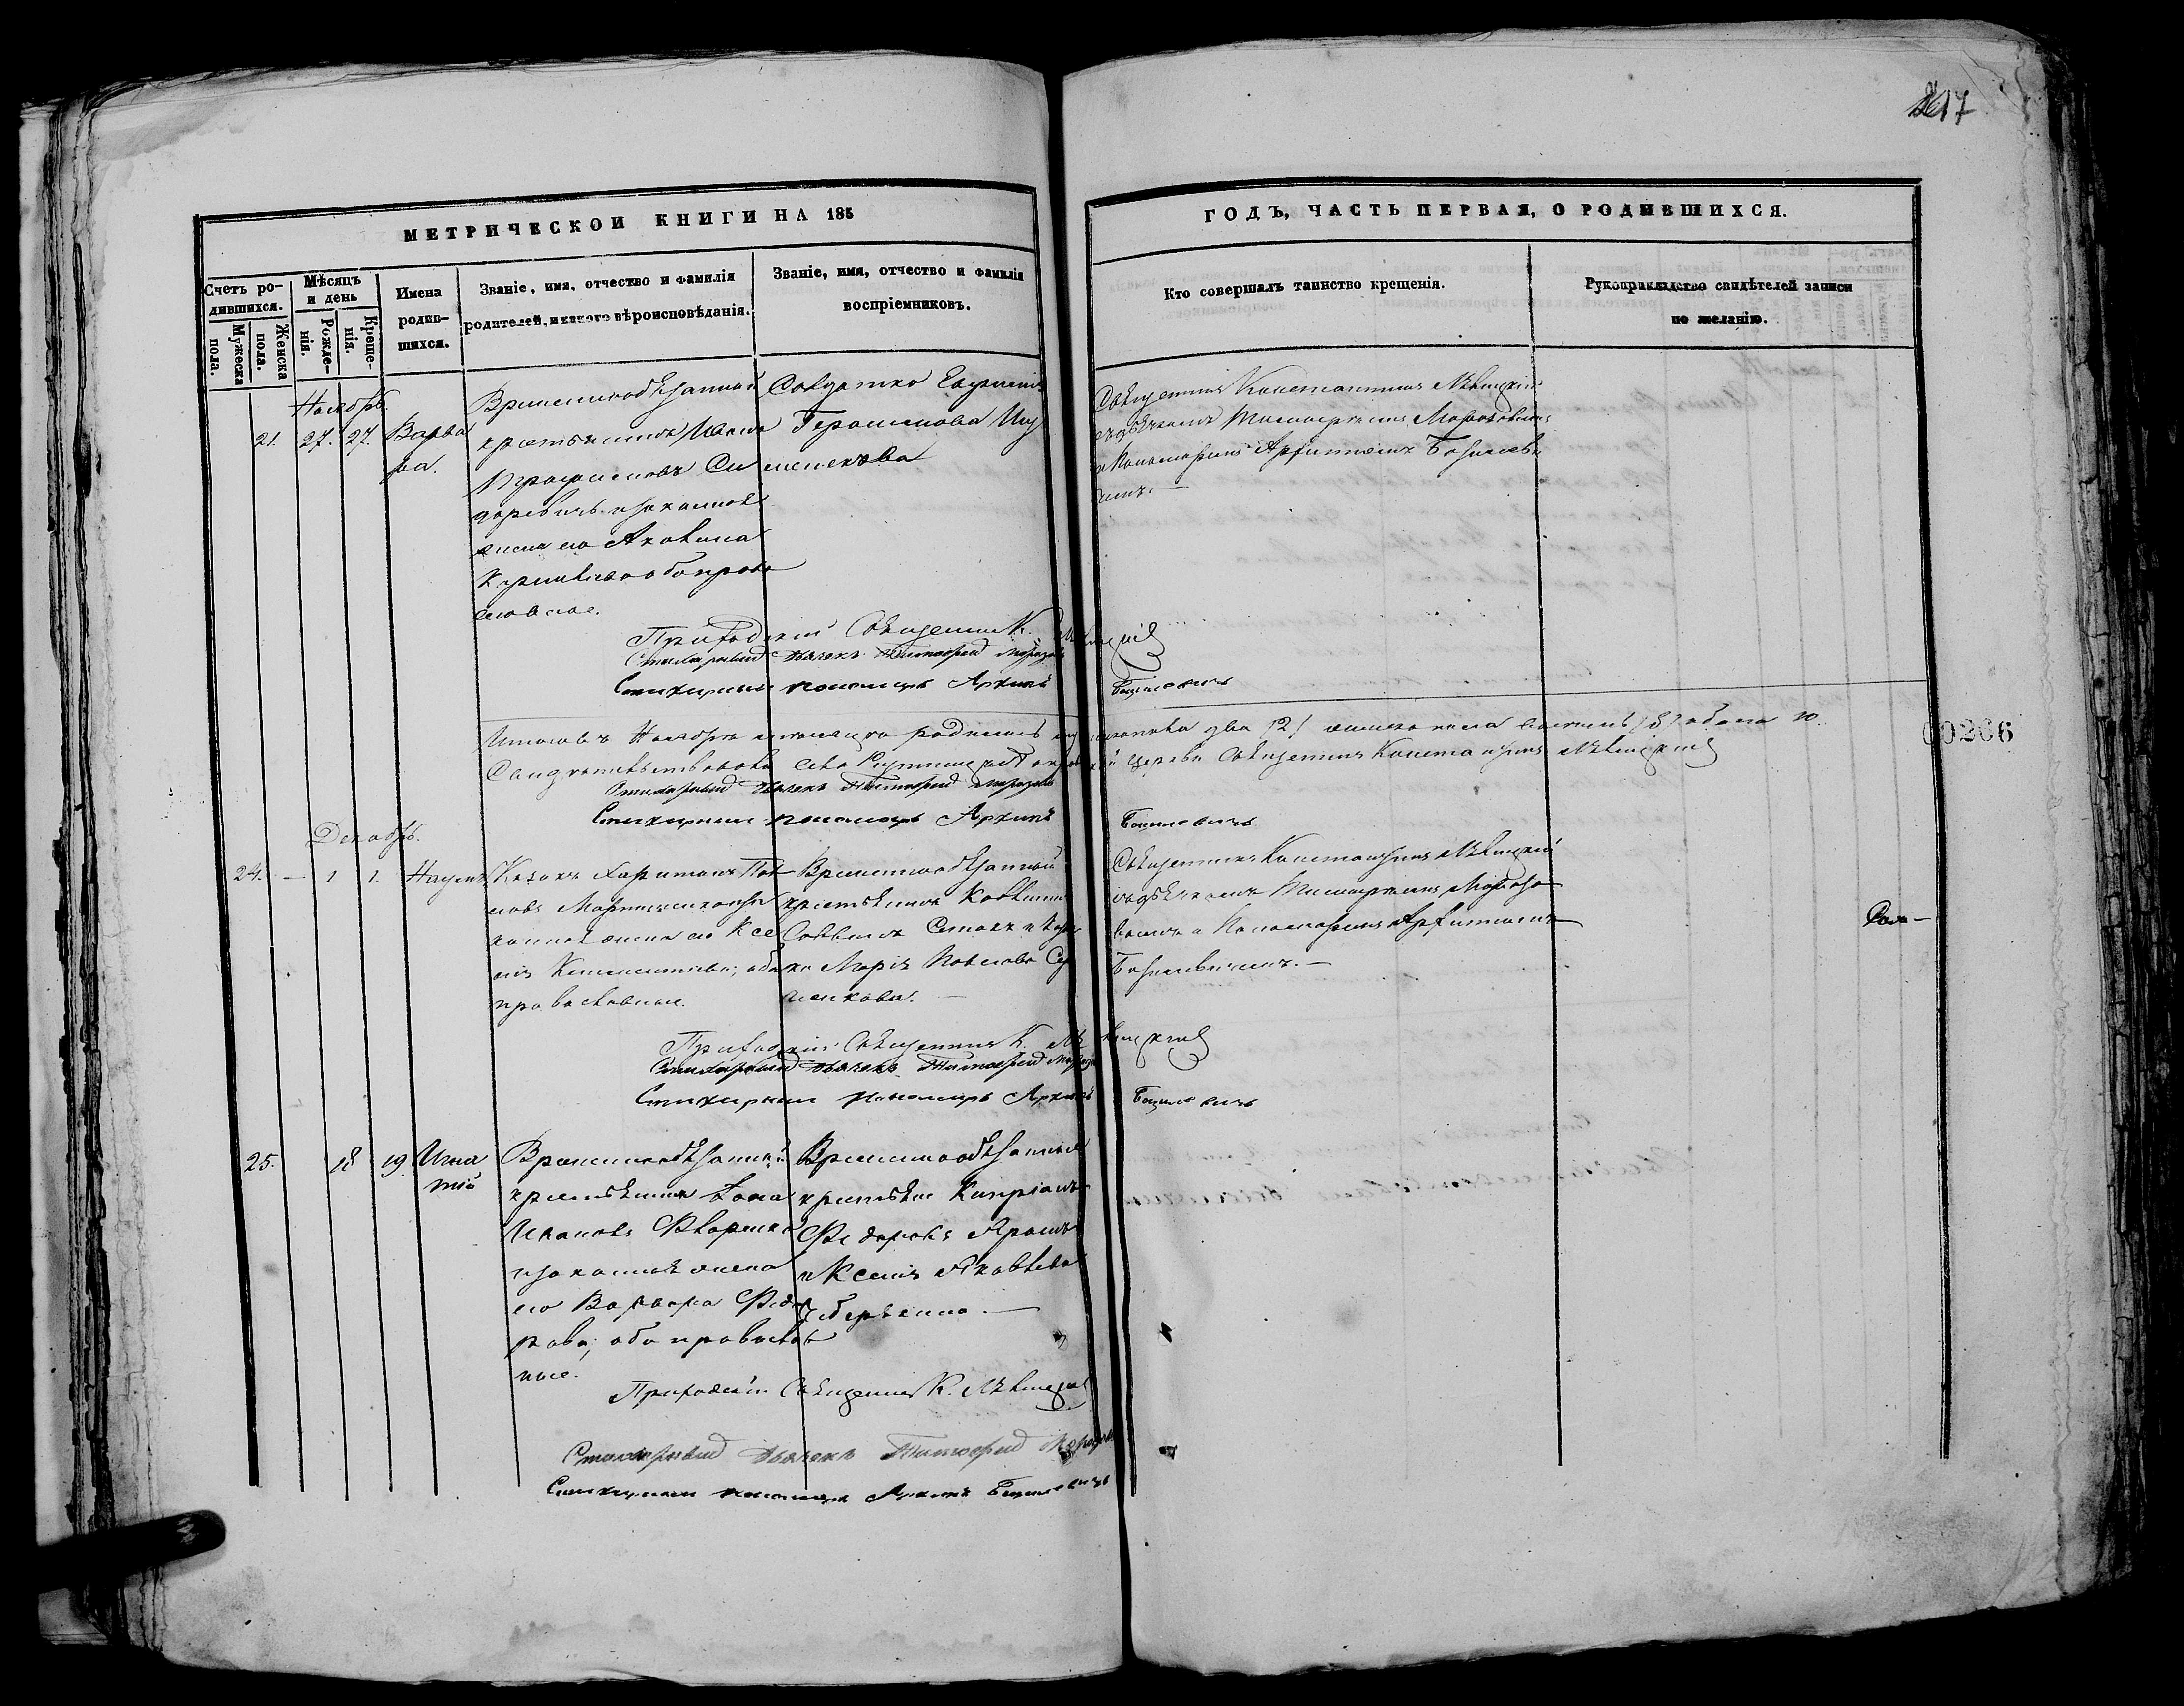 217
МЕТРИЧЕСКОЙ КНИГИ НА 185
ГОДЪ, ЧАСТЬ ПЕРВАЯ, О РОДИВШИХСЯ.
Счетъ родившихся.
Мужеска пола.
Женска пола.
Мѣсяцъ и день
Рожде-нія.
Креще-нія.
Имена родив-шихся.
Званіе, имя, отчество и фамилія
родителей, и какого вѣроисповѣданія.
Званіе, имя, отчество и фамилія
воспріемниковъ.
Кто совершалъ таинство крещенія.
Рукоприкладство свидѣтелей записи
по желанію.
Ноябрь
21. 27. 27. Варва
ра.
Временнообязанной
крестьянинъ Иванъ
Си
доревичь и законная
жена его Акилина
оба право
славные.
Солдатка Евгенія
Герасимова
Священникъ Константинъ Лѣвицкій
съ дьячкомъ Тимофеемъ Морозовымъ
и Пономаремъ Архиппомъ Базилеви
чемъ. —
Приходскій Священник К. Лѣвицкій
Стихарный дьячекъ Тимофей Морозовъ
Стихарный пономарь Архипъ Базилевичь
Итого въ Ноябрѣ мѣсяцѣ родилось мужеска пола два /2/ женска пола восемь /8/ обоего 10.
церкви Священникъ Константинъ Лѣвицкій
Стихарный дьячекъ Тимофей Морозовъ
Стихарный пономарь Архипъ Базилевичь
00266
Декабрь.
24. — 1 1. Наумъ
Казакъ Харитонъ Пав
ловъ и за
конная жена его Ксе
нія Климентіева; оба
православные.
Временнообязанной
крестьянинъ
Савваевъ
Марія Павлова Се
менкова. —
Священникъ Константинъ Лѣвицкій
съ дьячкомъ Тимофеемъ Морозо
вымъ и Пономаремъ Архиппомъ
Базилевичемъ. —
Приходскій Священникъ К. Лѣвицкій
Стихарный дьячекъ Тимофей Морозовъ
Стихарный пономарь Архипъ Базилевичь
25. 18 19 Игна
тій
Временнообязанный
крестьянинъ Іона
Ивановъ
и законная жена
его Варвара Федо
рова; оба православ
ные.
Временнообязанные
крестьяне Кипріанъ
Федоровъ
и Ксенія Яковлева
Приходскій Священникъ К. Лѣвицкій
Стихарный дьячекъ Тимофей Морозовъ
Стихарный пономарь Архипъ Базилевичь